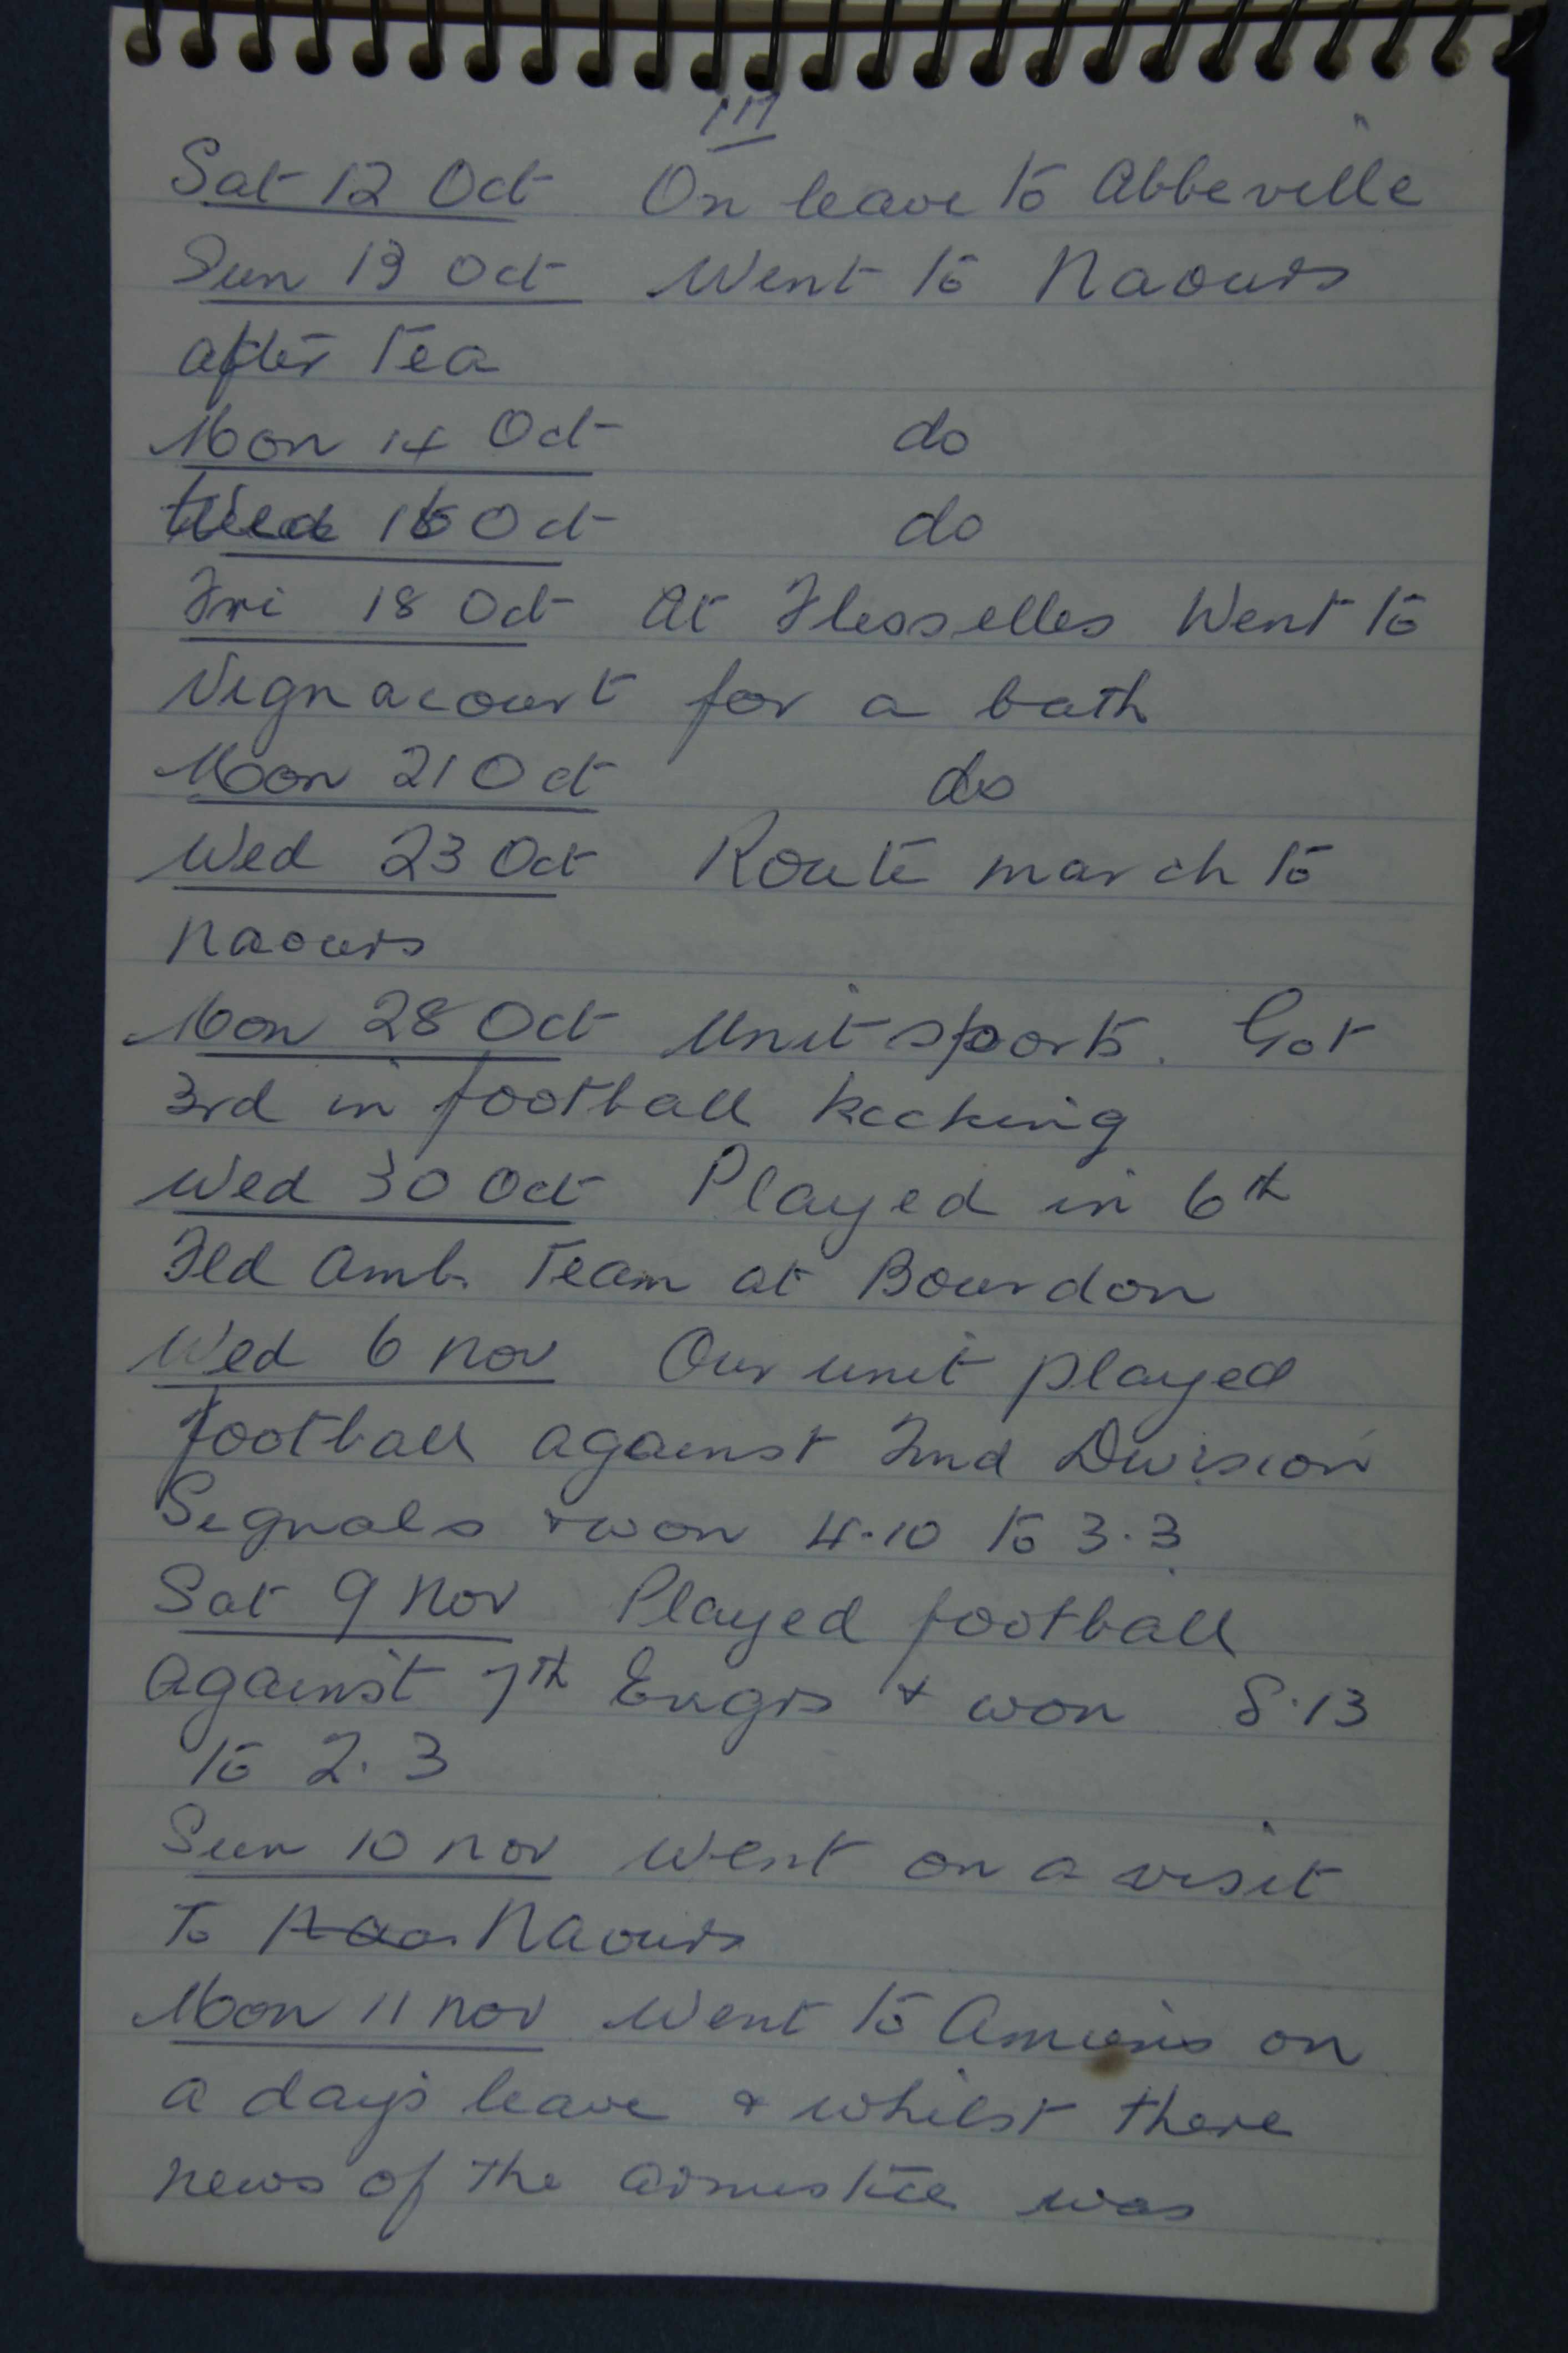 111
Sat 12 Oct On leave to Abbeville
Sun 13 Oct Went to Naours
after tea
Mon 14 Oct do
Wed 16 Oct do
Fri 18 Oct At Flesselles Went to
Vignacourt for a bath
Mon 21 Oct do
Wed 23 Oct Route march to
Naours
Mon 28 Oct Unit sports. Got
3rd in football kicking
Wed 30 Oct Played in 6th
Fld Amb. Team at Bourdon
Wed 6 Nov Our unit played
football against 2nd Division
Signals & won 4.10 to 3.3
Sat 9 Nov Played football
against 7th Engrs & won 8.13
to 2.3
Sun 10 Nov Went on a visit
to Naours
Mon 11 Nov Went to Amiens on
a day's leave & whilst there
news of the armistice was